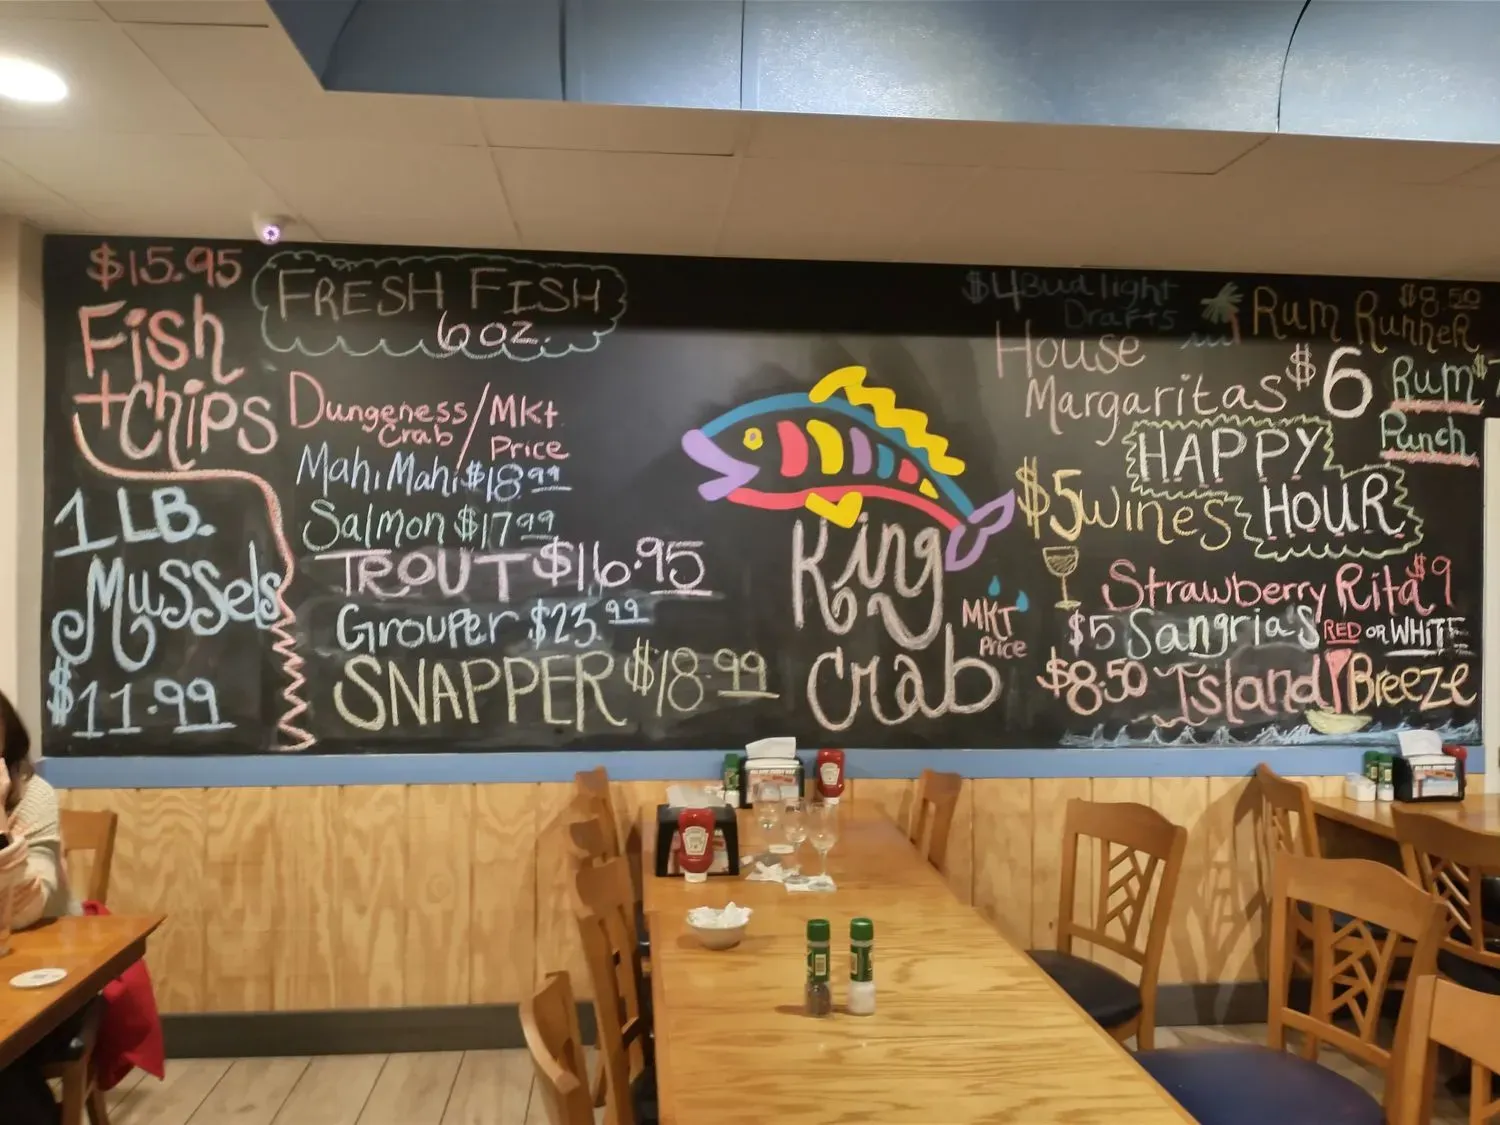 $15.95
Fish
+Chips
1 LB.
Mussels
$11.99
FRESH FISH
6 oz.
Dungeness
Crab / MKt.
Price
Mahi Mahi $18.99
Salmon $17.99
TROUT $16.95
Grouper $23.99
SNAPPER $18.99
King
Crab
MKT
Price
$4 Bud light
Drafts
House
Margaritas $6
HAPPY
HOUR
$5 wines
Rum Runner $8.50
Rum
Punch
Strawberry Rita $9
$5 Sangria's RED OR WHITE
$8.50 Island Breeze